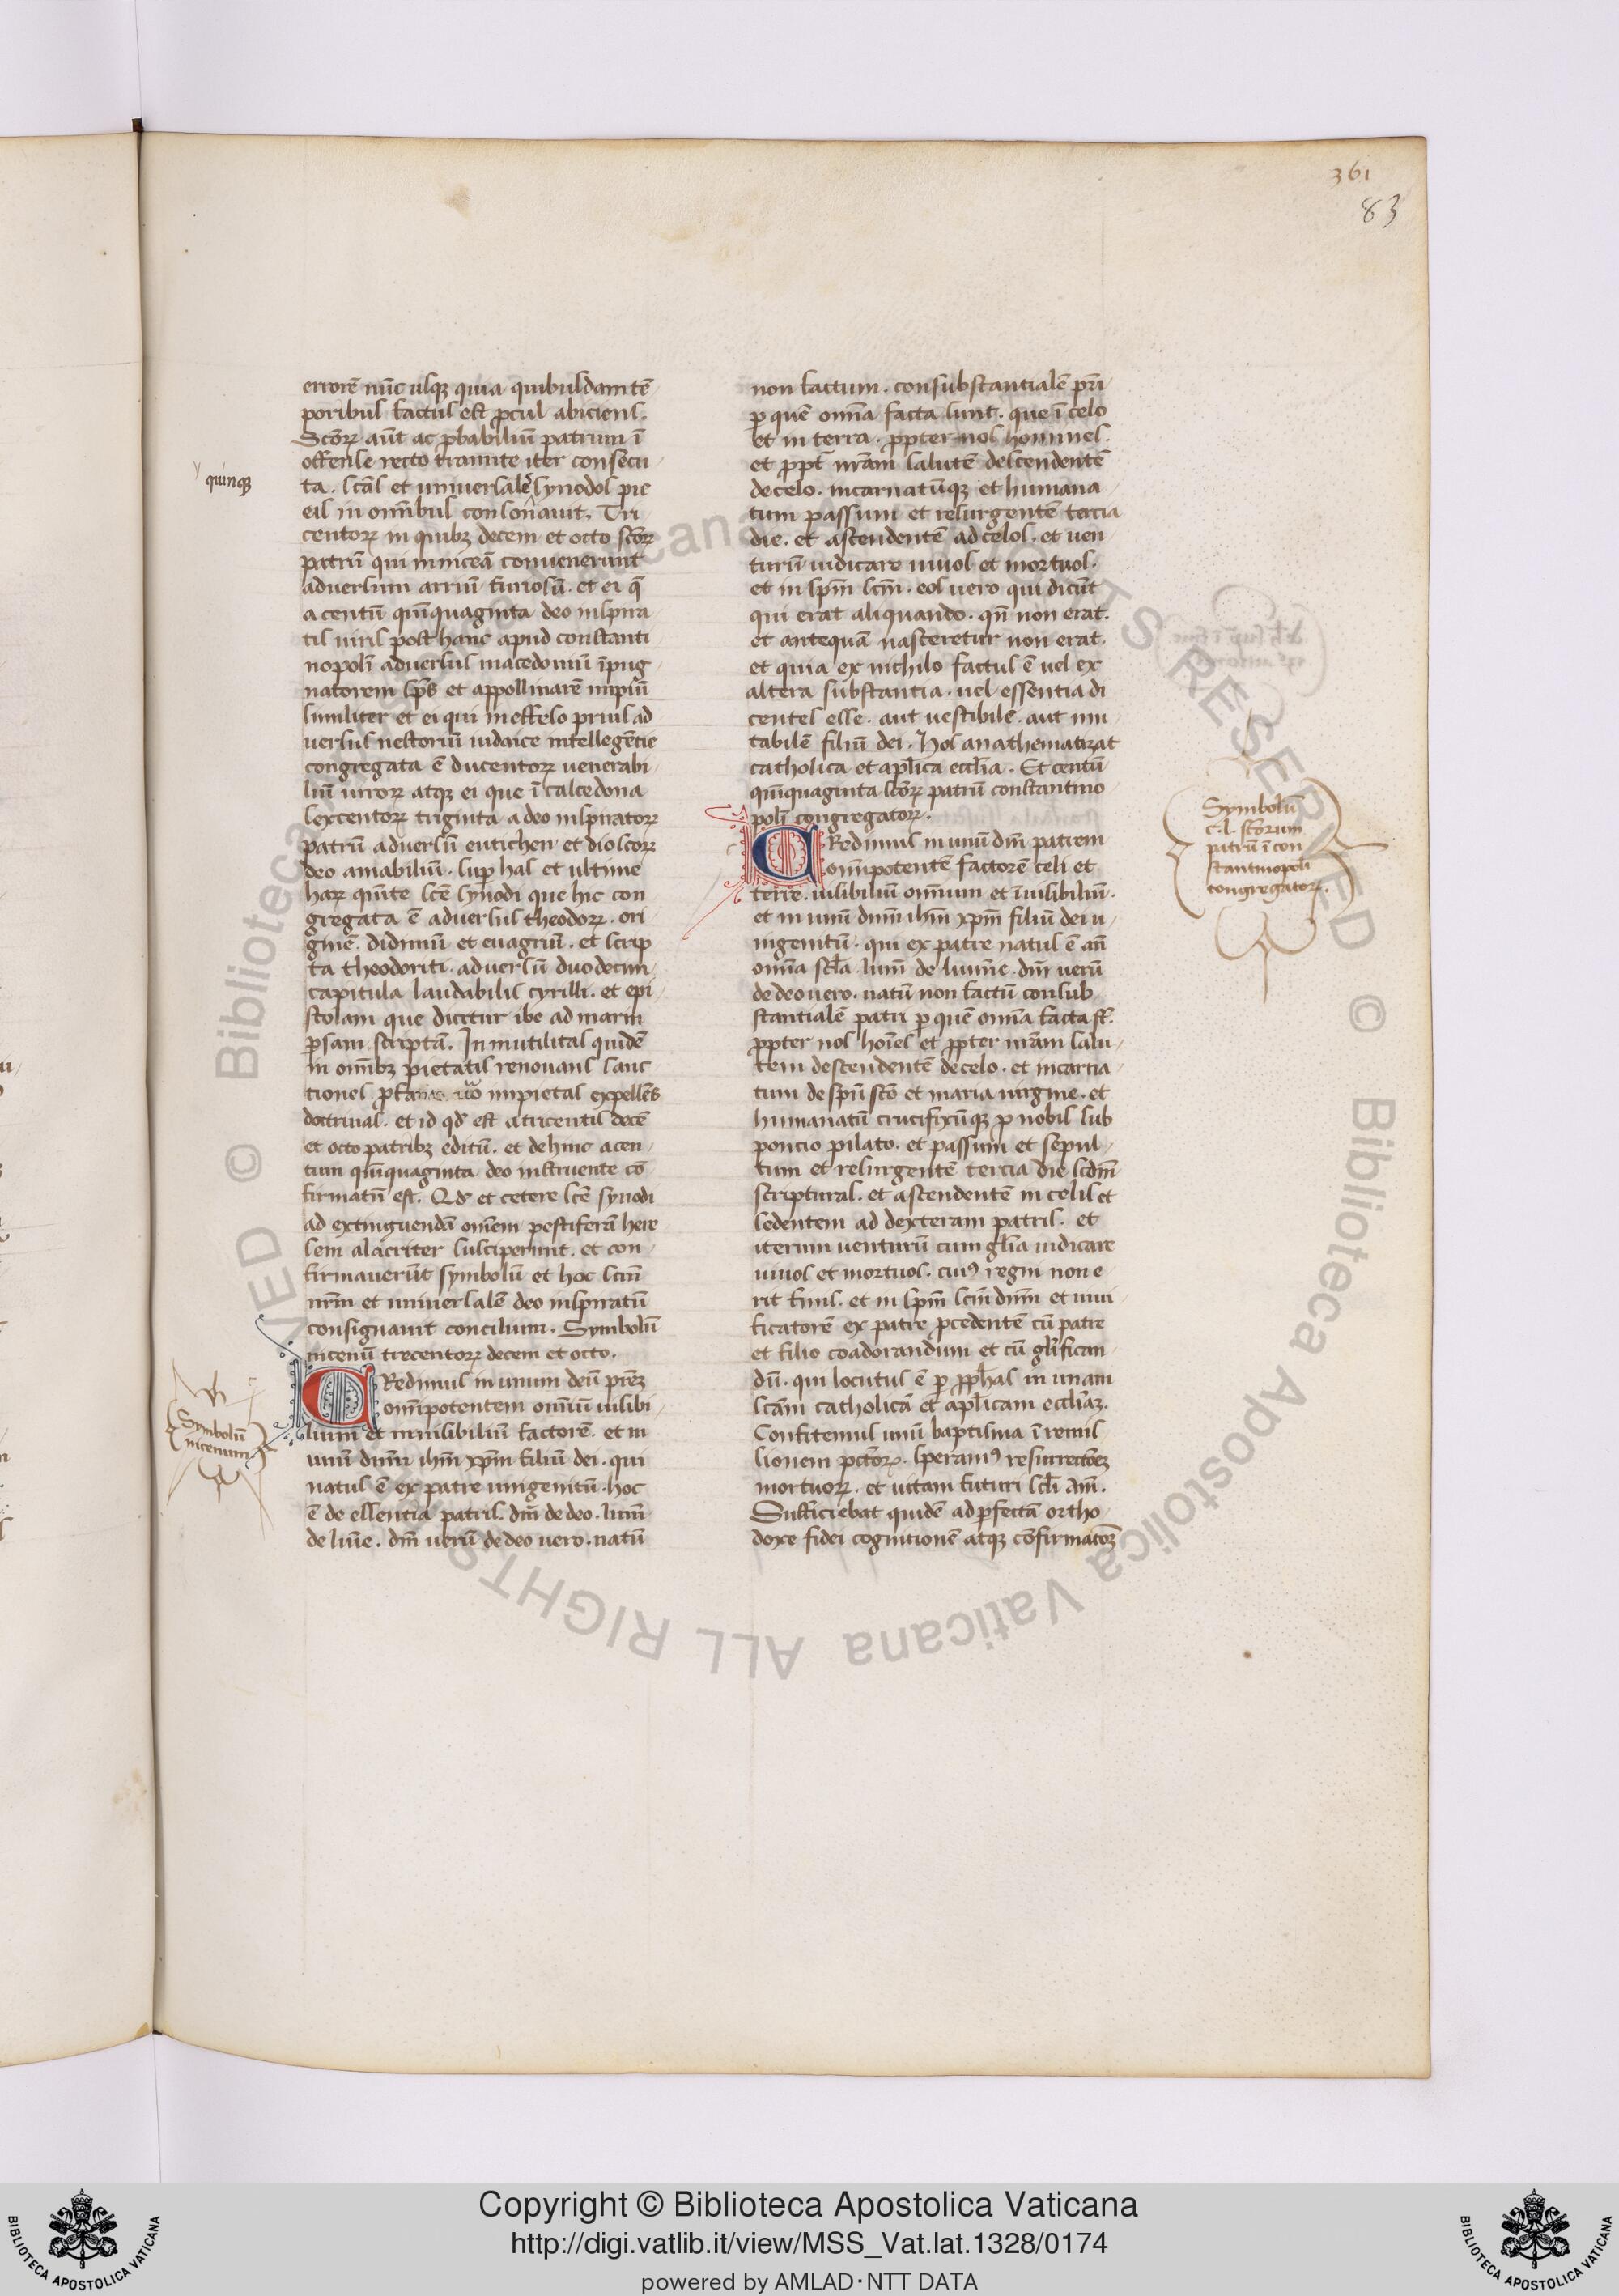 361
83
errorē nūc usq; quia quibusdam tē
poribus factus est ꝓcul abiciens.
Scōꝝ aūt ac ꝓbabiliū patrum ī
offense recto tramite iter consecu
ta. scās et universales synodos pie
quinq;
eis in omībus consonavit. Tri
centoꝝ in quibꝫ decem et octo scōꝝ
patrū qui in niceā convenerunt
adversum arriū furiosū. et ei q̄
a centū quīquaginta deo inspira
tis viris post hanc apud constanti
nopolī adversus macedoniū īpug
natorem spūs et appollinarē impiū
similiter et ei qui in effeso prius ad
versus nestoriū iudaice intellegētie
congregata ē ducentoꝝ venerabi
liū viroꝝ atqꝫ ei que ī calcedona
sexcentoꝝ triginta a deo inspiratoꝝ
patrū adversū eutichen et dioscoꝝ
deo amabiliū. suꝑ has et ultime
haꝝ quīte scē synodi que hic con
gregata ē adversus theodoꝝ. ori
ginē. didimū et evagriū. et scrip
ta theodoriti. adversū duodecim
capitula laudabilis cyrilli. et epi
stolam que dicitur ibe ad marin
ꝑsam scriptā. In mutilitas quidē
in omībꝫ pietatis renovans sanc
tiones impietas expellēs
doctrinas. et id qd̄ est a tricentis decē
et octo patribꝫ editū. et dehinc a cen
tum quīquaginta deo instruente cō
firmatū est. Qd̄ et cetere scē synodi
ad extinguendā omēm pestiferā here
sem alacriter susciperunt. et con
firmaverūt symbolū et hoc scm̄
nr̄m et universalē deo inspiratū
consignavit concilium. Symbolū
nicenū trecentoꝝ decem et octo.
Symbolū
nicenum.
CRedimus in unum deū prēꝫ
omīpotentem omniū visibi
lium et invisibiliū factorē. et in
unū dnm̄ ihm̄ xpm̄ filiū dei. qui
natus ē ex patre unigenitū. hoc
ē de essentia patris. dm̄ de deo. lum̄
de lum̄e. dm̄ verū de deo vero. natū
non factum. consubstantialē pr̄i
ꝑ quē omīa facta sunt. que ī celo
et in terra. ꝓpter nos homines.
et ꝓpt̄ nr̄am salutē descendentē
de celo. incarnatūqꝫ et humana
tum passum et resurgentē tercia
die. et ascendentē ad celos. et ven
turū iudicare vivos et mortuos.
et in spm̄ scm̄. eos vero qui dicūt
qui erat aliquando. qn̄ non erat.
et antequā nasceretur non erat.
et quia ex nichilo factus ē vel ex
altera substantia. vel essentia di
centes esse. aut vestibilē. aut mu
tabilē filiū dei. Hos anathematizat
catholica et aplica ecclia. Et centū
quīquaginta scōꝝ patrū constantino
polī congregatoꝝ.
Symbolū
c. l. scōrum
patrū ī con
stantinopoli
congregatoꝝ.
CRedimus in unū dm̄ patrem
omīpotentē factorē celi et
terre. visibiliū omnium et īvisibiliū.
et in unū dnm̄ ihm̄ xpm̄ filiū dei u
nigenitū. qui ex patre natus ē an̄
omīa scla. lum̄ de lumīe. dm̄ verū
de deo vero. natū non factū consub
stantialē patri ꝑ quē omīa facta st̄.
ꝓpter nos hoīes et ꝓpter nr̄am salu
tem descendentē de celo. et incarna
tum de spū scō et maria virgine. et
humanatū crucifixūqꝫ ꝓ nobis sub
poncio pilato. et passum et sepul
tum et resurgentē tercia die scdm̄
scripturas. et ascendentē in celis et
sedentem ad dexteram patris. et
iterum venturū cum glīa iudicare
vivos et mortuos. cuiꝰ regni non e
rit finis. et in spm̄ scm̄ dnm̄ et vivi
ficatorē ex patre ꝓcedentē cū patre
et filio coadorandum et cū glīfican
dū. qui locutus ē ꝑ ꝓphas in unam
scām catholicā et aplicam eccliaꝫ.
Confitemus unū baptisma ī remis
sionem pctōꝝ. speramꝰ resurrectōeꝫ
mortuoꝝ. et vitam futuri scli am̄.
Sufficiebat quidē ad ꝑfectā ortho
doxe fidei cognitionē atqꝫ cōfirmatōeꝫ
Copyright © Biblioteca Apostolica Vaticana
http://digi.vatlib.it/view/MSS_Vat.lat.1328/0174
powered by AMLAD·NTT DATA
BIBLIOTECA APOSTOLICA VATICANA
BIBLIOTECA APOSTOLICA VATICANA